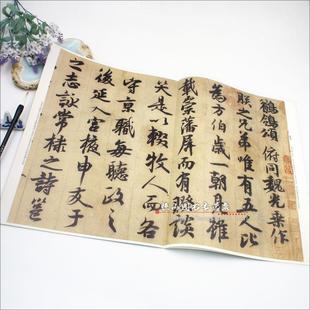 鶺鴒頌 俯同魏光乘作
朕之兄弟唯有五人比
為方伯歲一朝見雖
載崇藩屏而有睽談
笑是以輟牧人而各
守京職每聽政之
後延入宮掖申友于
之志詠常棣之詩邕